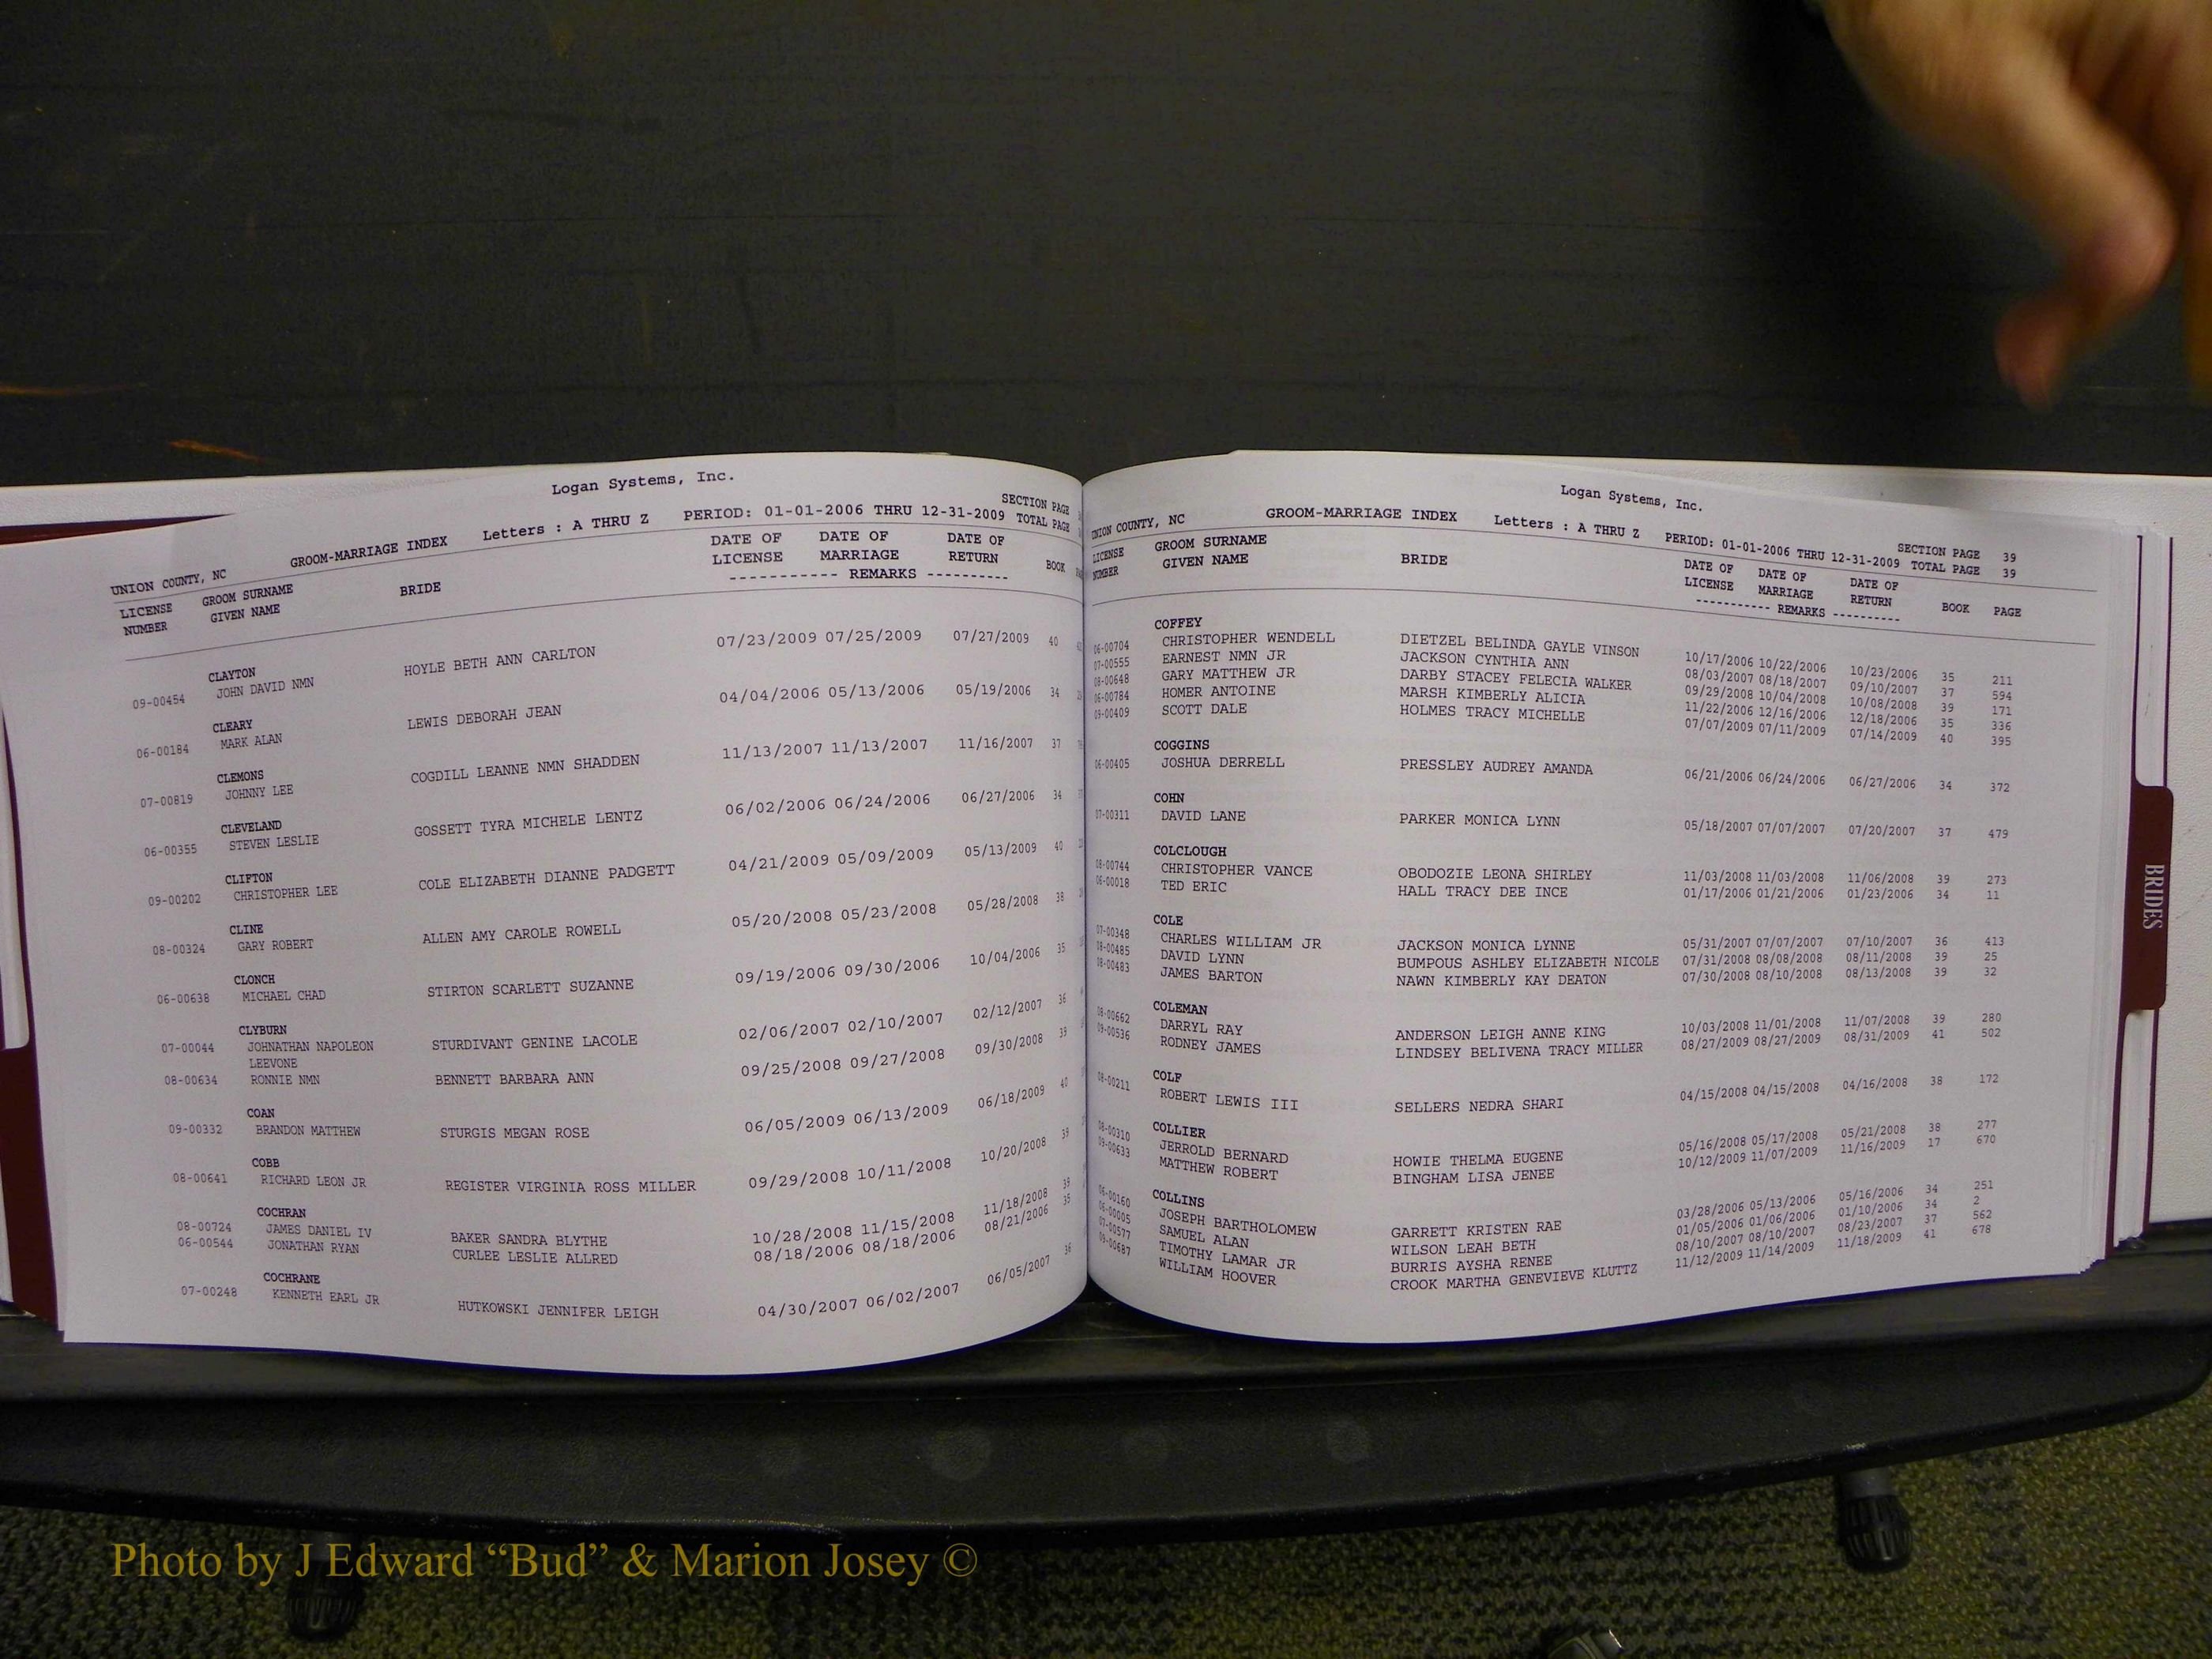 Logan Systems, Inc.
SECTION PAGE
UNION COUNTY, NC GROOM-MARRIAGE INDEX Letters : A THRU Z PERIOD: 01-01-2006 THRU 12-31-2009 TOTAL PAGE
LICENSE GROOM SURNAME BRIDE DATE OF DATE OF DATE OF BOOK
NUMBER GIVEN NAME LICENSE MARRIAGE RETURN
----------- REMARKS ----------
CLAYTON
09-00454 JOHN DAVID NMN HOYLE BETH ANN CARLTON 07/23/2009 07/25/2009 07/27/2009 40
CLEARY
06-00184 MARK ALAN LEWIS DEBORAH JEAN 04/04/2006 05/13/2006 05/19/2006 34
CLEMONS
07-00819 JOHNNY LEE COGDILL LEANNE NMN SHADDEN 11/13/2007 11/13/2007 11/16/2007 37
CLEVELAND
06-00355 STEVEN LESLIE GOSSETT TYRA MICHELE LENTZ 06/02/2006 06/24/2006 06/27/2006 34
CLIFTON
09-00202 CHRISTOPHER LEE COLE ELIZABETH DIANNE PADGETT 04/21/2009 05/09/2009 05/13/2009 40
CLINE
08-00324 GARY ROBERT ALLEN AMY CAROLE ROWELL 05/20/2008 05/23/2008 05/28/2008 38
CLONCH
06-00638 MICHAEL CHAD STIRTON SCARLETT SUZANNE 09/19/2006 09/30/2006 10/04/2006 35
CLYBURN
07-00044 JOHNATHAN NAPOLEON STURDIVANT GENINE LACOLE 02/06/2007 02/10/2007 02/12/2007 36
LEEVONE
08-00634 RONNIE NMN BENNETT BARBARA ANN 09/25/2008 09/27/2008 09/30/2008 39
COAN
09-00332 BRANDON MATTHEW STURGIS MEGAN ROSE 06/05/2009 06/13/2009 06/18/2009 40
COBB
08-00641 RICHARD LEON JR REGISTER VIRGINIA ROSS MILLER 09/29/2008 10/11/2008 10/20/2008 39
COCHRAN
08-00724 JAMES DANIEL IV BAKER SANDRA BLYTHE 10/28/2008 11/15/2008 11/18/2008 39
06-00544 JONATHAN RYAN CURLEE LESLIE ALLRED 08/18/2006 08/18/2006 08/21/2006 35
COCHRANE
07-00248 KENNETH EARL JR HUTKOWSKI JENNIFER LEIGH 04/30/2007 06/02/2007 06/05/2007 36
Logan Systems, Inc.
SECTION PAGE 39
UNION COUNTY, NC GROOM-MARRIAGE INDEX Letters : A THRU Z PERIOD: 01-01-2006 THRU 12-31-2009 TOTAL PAGE 39
LICENSE GROOM SURNAME BRIDE DATE OF DATE OF DATE OF BOOK PAGE
NUMBER GIVEN NAME LICENSE MARRIAGE RETURN
----------- REMARKS ----------
COFFEY
06-00704 CHRISTOPHER WENDELL DIETZEL BELINDA GAYLE VINSON 10/17/2006 10/22/2006 10/23/2006 35 211
07-00555 EARNEST NMN JR JACKSON CYNTHIA ANN 08/03/2007 08/18/2007 09/10/2007 37 594
08-00648 GARY MATTHEW JR DARBY STACEY FELECIA WALKER 09/29/2008 10/04/2008 10/08/2008 39 171
06-00784 HOMER ANTOINE MARSH KIMBERLY ALICIA 11/22/2006 12/16/2006 12/18/2006 35 336
09-00409 SCOTT DALE HOLMES TRACY MICHELLE 07/07/2009 07/11/2009 07/14/2009 40 395
COGGINS
06-00405 JOSHUA DERRELL PRESSLEY AUDREY AMANDA 06/21/2006 06/24/2006 06/27/2006 34 372
COHN
07-00311 DAVID LANE PARKER MONICA LYNN 05/18/2007 07/07/2007 07/20/2007 37 479
COLCLOUGH
08-00744 CHRISTOPHER VANCE OBODOZIE LEONA SHIRLEY 11/03/2008 11/03/2008 11/06/2008 39 273
06-00018 TED ERIC HALL TRACY DEE INCE 01/17/2006 01/21/2006 01/23/2006 34 11
COLE
07-00348 CHARLES WILLIAM JR JACKSON MONICA LYNNE 05/31/2007 07/07/2007 07/10/2007 36 413
08-00485 DAVID LYNN BUMPOUS ASHLEY ELIZABETH NICOLE 07/31/2008 08/08/2008 08/11/2008 39 25
08-00483 JAMES BARTON NAWN KIMBERLY KAY DEATON 07/30/2008 08/10/2008 08/13/2008 39 32
COLEMAN
08-00662 DARRYL RAY ANDERSON LEIGH ANNE KING 10/03/2008 11/01/2008 11/07/2008 39 280
09-00536 RODNEY JAMES LINDSEY BELIVENA TRACY MILLER 08/27/2009 08/27/2009 08/31/2009 41 502
COLF
08-00211 ROBERT LEWIS III SELLERS NEDRA SHARI 04/15/2008 04/15/2008 04/16/2008 38 172
COLLIER
08-00310 JERROLD BERNARD HOWIE THELMA EUGENE 05/16/2008 05/17/2008 05/21/2008 38 277
09-00633 MATTHEW ROBERT BINGHAM LISA JENEE 10/12/2009 11/07/2009 11/16/2009 17 670
COLLINS
06-00160 JOSEPH BARTHOLOMEW GARRETT KRISTEN RAE 03/28/2006 05/13/2006 05/16/2006 34 251
06-00005 SAMUEL ALAN WILSON LEAH BETH 01/05/2006 01/06/2006 01/10/2006 34 2
07-00577 TIMOTHY LAMAR JR BURRIS AYSHA RENEE 08/10/2007 08/10/2007 08/23/2007 37 562
09-00687 WILLIAM HOOVER CROOK MARTHA GENEVIEVE KLUTTZ 11/12/2009 11/14/2009 11/18/2009 41 678
BRIDES
Photo by J Edward “Bud” & Marion Josey ©